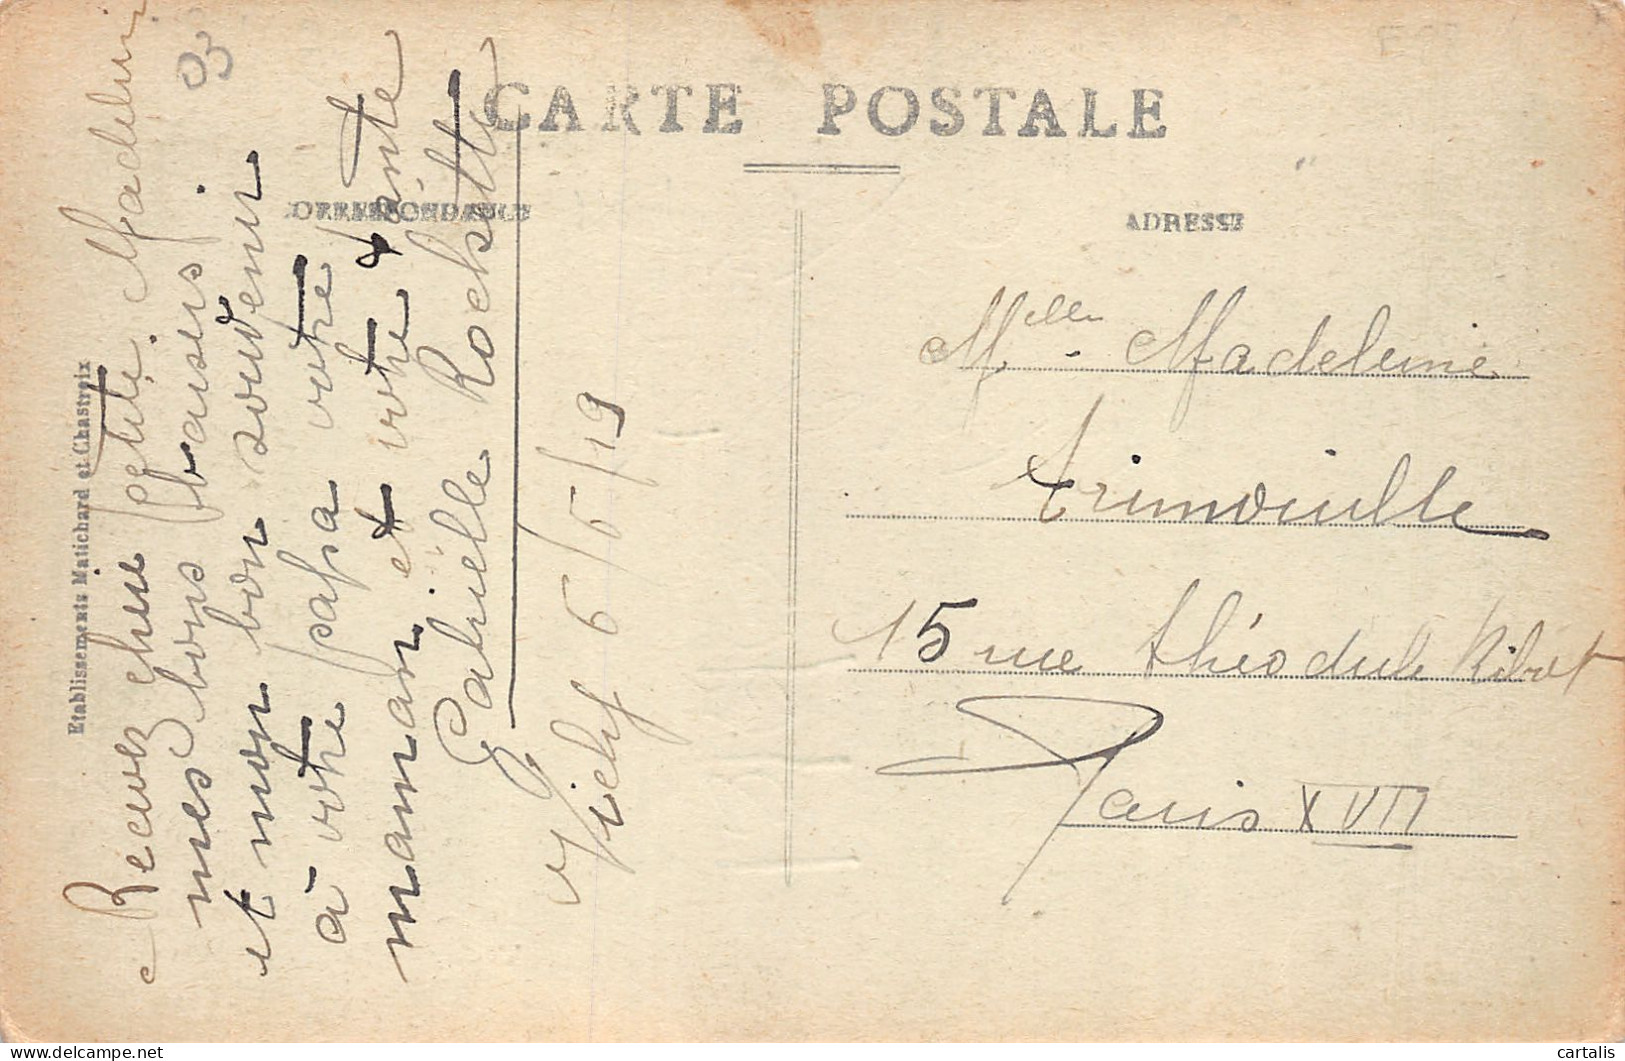 CARTE POSTALE
CORRESPONDANCE
ADRESSE
Etablissements Matichard et Chastroix
03
Recevez chère petite Madeleine
mes bons baisers
et mon bon souvenir
à votre papa votre
maman et votre tante
Gabrielle Rochette
Vichy 6/5/19
Melle Madeleine
Arinvielle
15 rue théodule Ribot
Paris XVII
cartalis